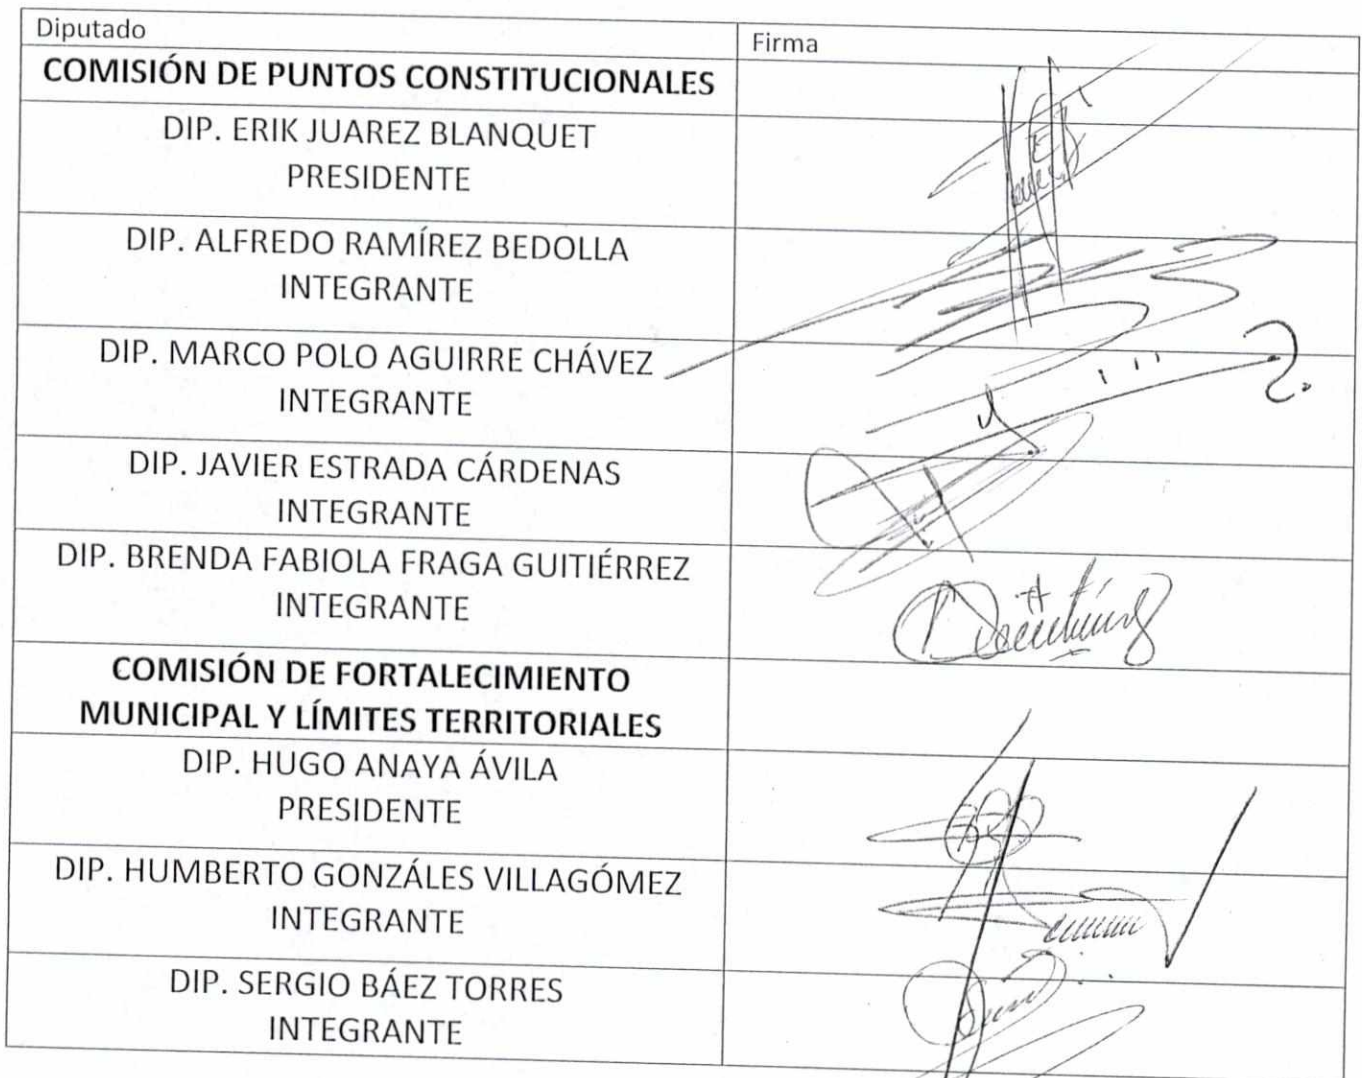 Diputado
Firma
COMISIÓN DE PUNTOS CONSTITUCIONALES
DIP. ERIK JUAREZ BLANQUET
PRESIDENTE
DIP. ALFREDO RAMÍREZ BEDOLLA
INTEGRANTE
DIP. MARCO POLO AGUIRRE CHÁVEZ
INTEGRANTE
DIP. JAVIER ESTRADA CÁRDENAS
INTEGRANTE
DIP. BRENDA FABIOLA FRAGA GUITIÉRREZ
INTEGRANTE
COMISIÓN DE FORTALECIMIENTO
MUNICIPAL Y LÍMITES TERRITORIALES
DIP. HUGO ANAYA ÁVILA
PRESIDENTE
DIP. HUMBERTO GONZÁLES VILLAGÓMEZ
INTEGRANTE
DIP. SERGIO BÁEZ TORRES
INTEGRANTE